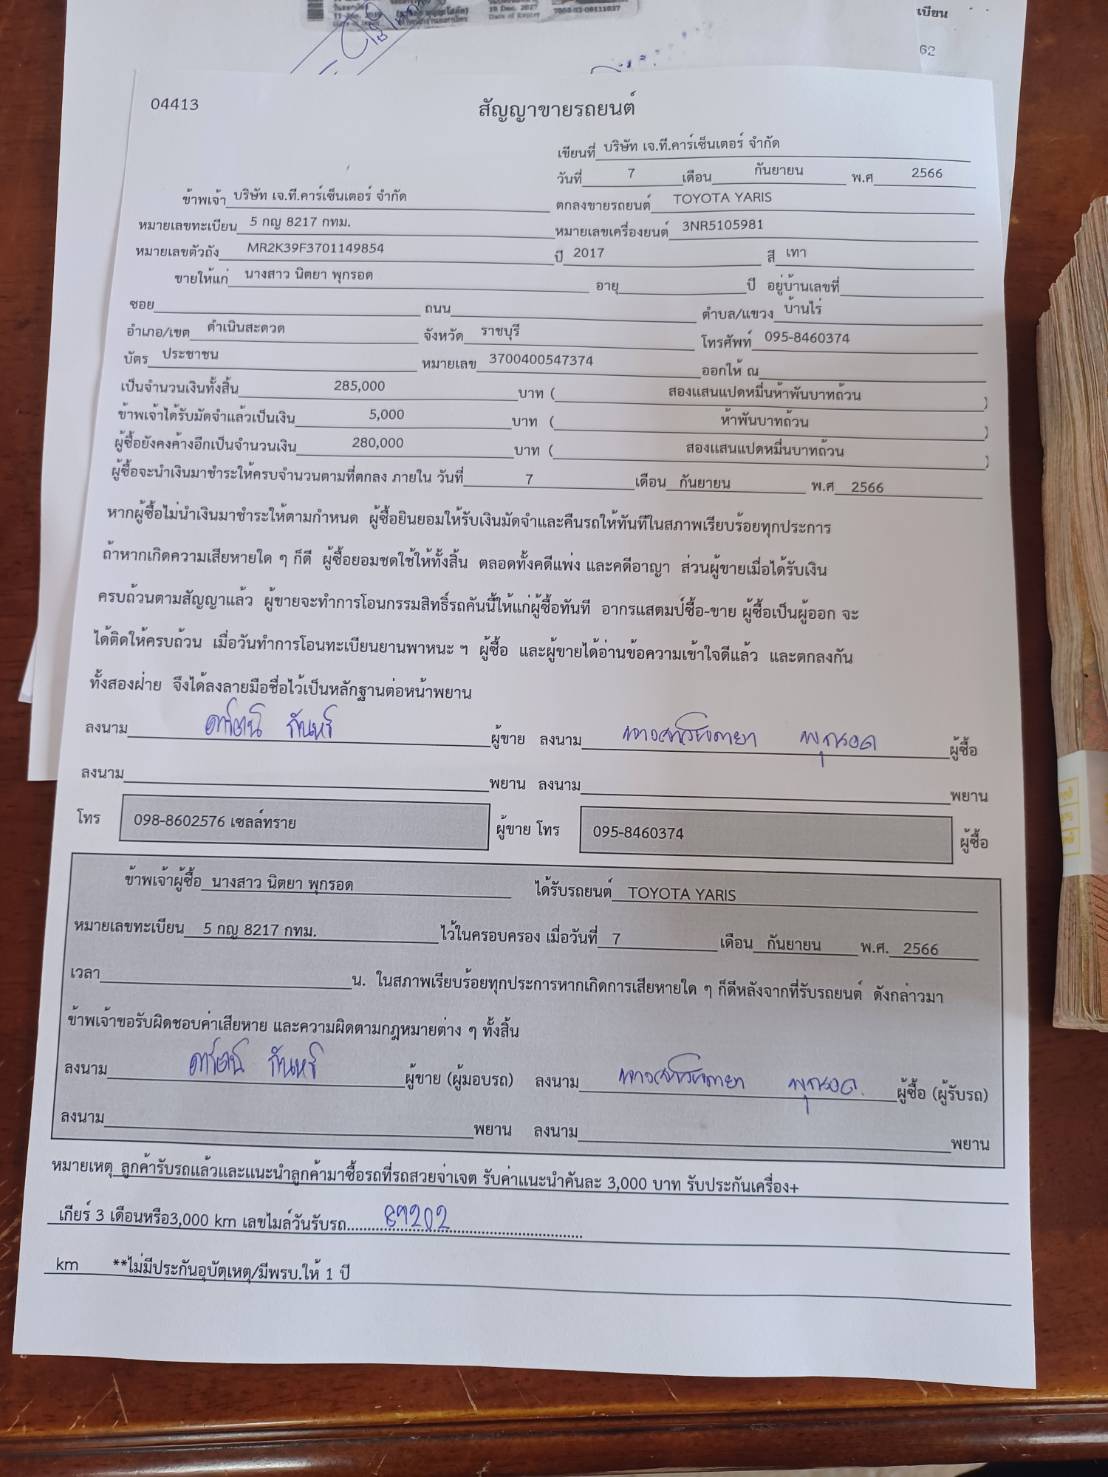 เบียน
62
04413
สัญญาขายรถยนต์
เขียนที่ บริษัท เจ.ที.คาร์เซ็นเตอร์ จำกัด
วันที่ 7 เดือน กันยายน พ.ศ 2566
ข้าพเจ้า บริษัท เจ.ที.คาร์เซ็นเตอร์ จำกัด ตกลงขายรถยนต์ TOYOTA YARIS
หมายเลขทะเบียน 5 กญ 8217 กทม. หมายเลขเครื่องยนต์ 3NR5105981
หมายเลขตัวถัง MR2K39F3701149854 ปี 2017 สี เทา
ขายให้แก่ นางสาว นิตยา พุกรอด อายุ ปี อยู่บ้านเลขที่
ซอย ถนน ตำบล/แขวง บ้านไร่
อำเภอ/เขต ดำเนินสะดวด จังหวัด ราชบุรี โทรศัพท์ 095-8460374
บัตร ประชาชน หมายเลข 3700400547374 ออกให้ ณ
เป็นจำนวนเงินทั้งสิ้น 285,000 บาท ( สองแสนแปดหมื่นห้าพันบาทถ้วน )
ข้าพเจ้าได้รับมัดจำแล้วเป็นเงิน 5,000 บาท ( ห้าพันบาทถ้วน )
ผู้ซื้อยังคงค้างอีกเป็นจำนวนเงิน 280,000 บาท ( สองแสนแปดหมื่นบาทถ้วน )
ผู้ซื้อจะนำเงินมาชำระให้ครบจำนวนตามที่ตกลง ภายใน วันที่ 7 เดือน กันยายน พ.ศ 2566
หากผู้ซื้อไม่นำเงินมาชำระให้ตามกำหนด ผู้ซื้อยินยอมให้รับเงินมัดจำและคืนรถให้ทันทีในสภาพเรียบร้อยทุกประการ
ถ้าหากเกิดความเสียหายใด ๆ ก็ดี ผู้ซื้อยอมชดใช้ให้ทั้งสิ้น ตลอดทั้งคดีแพ่ง และคดีอาญา ส่วนผู้ขายเมื่อได้รับเงิน
ครบถ้วนตามสัญญาแล้ว ผู้ขายจะทำการโอนกรรมสิทธิ์รถคันนี้ให้แก่ผู้ซื้อทันที อากรแสตมป์ซื้อ-ขาย ผู้ซื้อเป็นผู้ออก จะ
ได้ติดให้ครบถ้วน เมื่อวันทำการโอนทะเบียนยานพาหนะ ฯ ผู้ซื้อ และผู้ขายได้อ่านข้อความเข้าใจดีแล้ว และตกลงกัน
ทั้งสองฝ่าย จึงได้ลงลายมือชื่อไว้เป็นหลักฐานต่อหน้าพยาน
ลงนาม ผู้ขาย ลงนาม นางสาวนิตยา พุกรอด ผู้ซื้อ
ลงนาม พยาน ลงนาม พยาน
โทร 098-8602576 เซลล์ทราย ผู้ขาย โทร 095-8460374 ผู้ซื้อ
ข้าพเจ้าผู้ซื้อ นางสาว นิตยา พุกรอด ได้รับรถยนต์ TOYOTA YARIS
หมายเลขทะเบียน 5 กญ 8217 กทม. ไว้ในครอบครอง เมื่อวันที่ 7 เดือน กันยายน พ.ศ. 2566
เวลา น. ในสภาพเรียบร้อยทุกประการหากเกิดการเสียหายใด ๆ ก็ดีหลังจากที่รับรถยนต์ ดังกล่าวมา
ข้าพเจ้าขอรับผิดชอบค่าเสียหาย และความผิดตามกฎหมายต่าง ๆ ทั้งสิ้น
ลงนาม ผู้ขาย (ผู้มอบรถ) ลงนาม นางสาวนิตยา พุกรอด ผู้ซื้อ (ผู้รับรถ)
ลงนาม พยาน ลงนาม พยาน
หมายเหตุ ลูกค้ารับรถแล้วและแนะนำลูกค้ามาซื้อรถที่รถสวยจ่าเจต รับค่าแนะนำคันละ 3,000 บาท รับประกันเครื่อง+
เกียร์ 3 เดือนหรือ3,000 km เลขไมล์วันรับรถ 89202
km **ไม่มีประกันอุบัตเหตุ/มีพรบ.ให้ 1 ปี